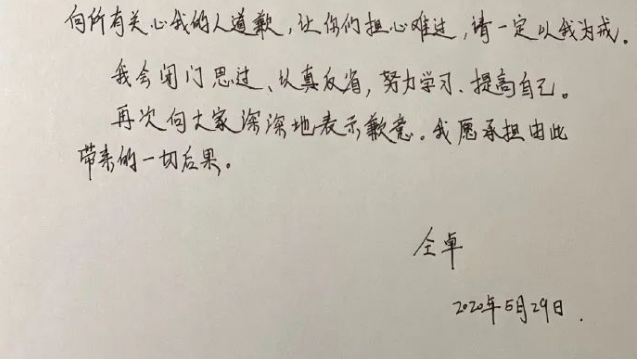 向所有关心我的人道歉，让你们担心难过，请一定以我为戒。
我会闭门思过、认真反省，努力学习、提高自己。
再次向大家深深地表示歉意。我愿承担由此
带来的一切后果。
仝卓
2020年5月29日.